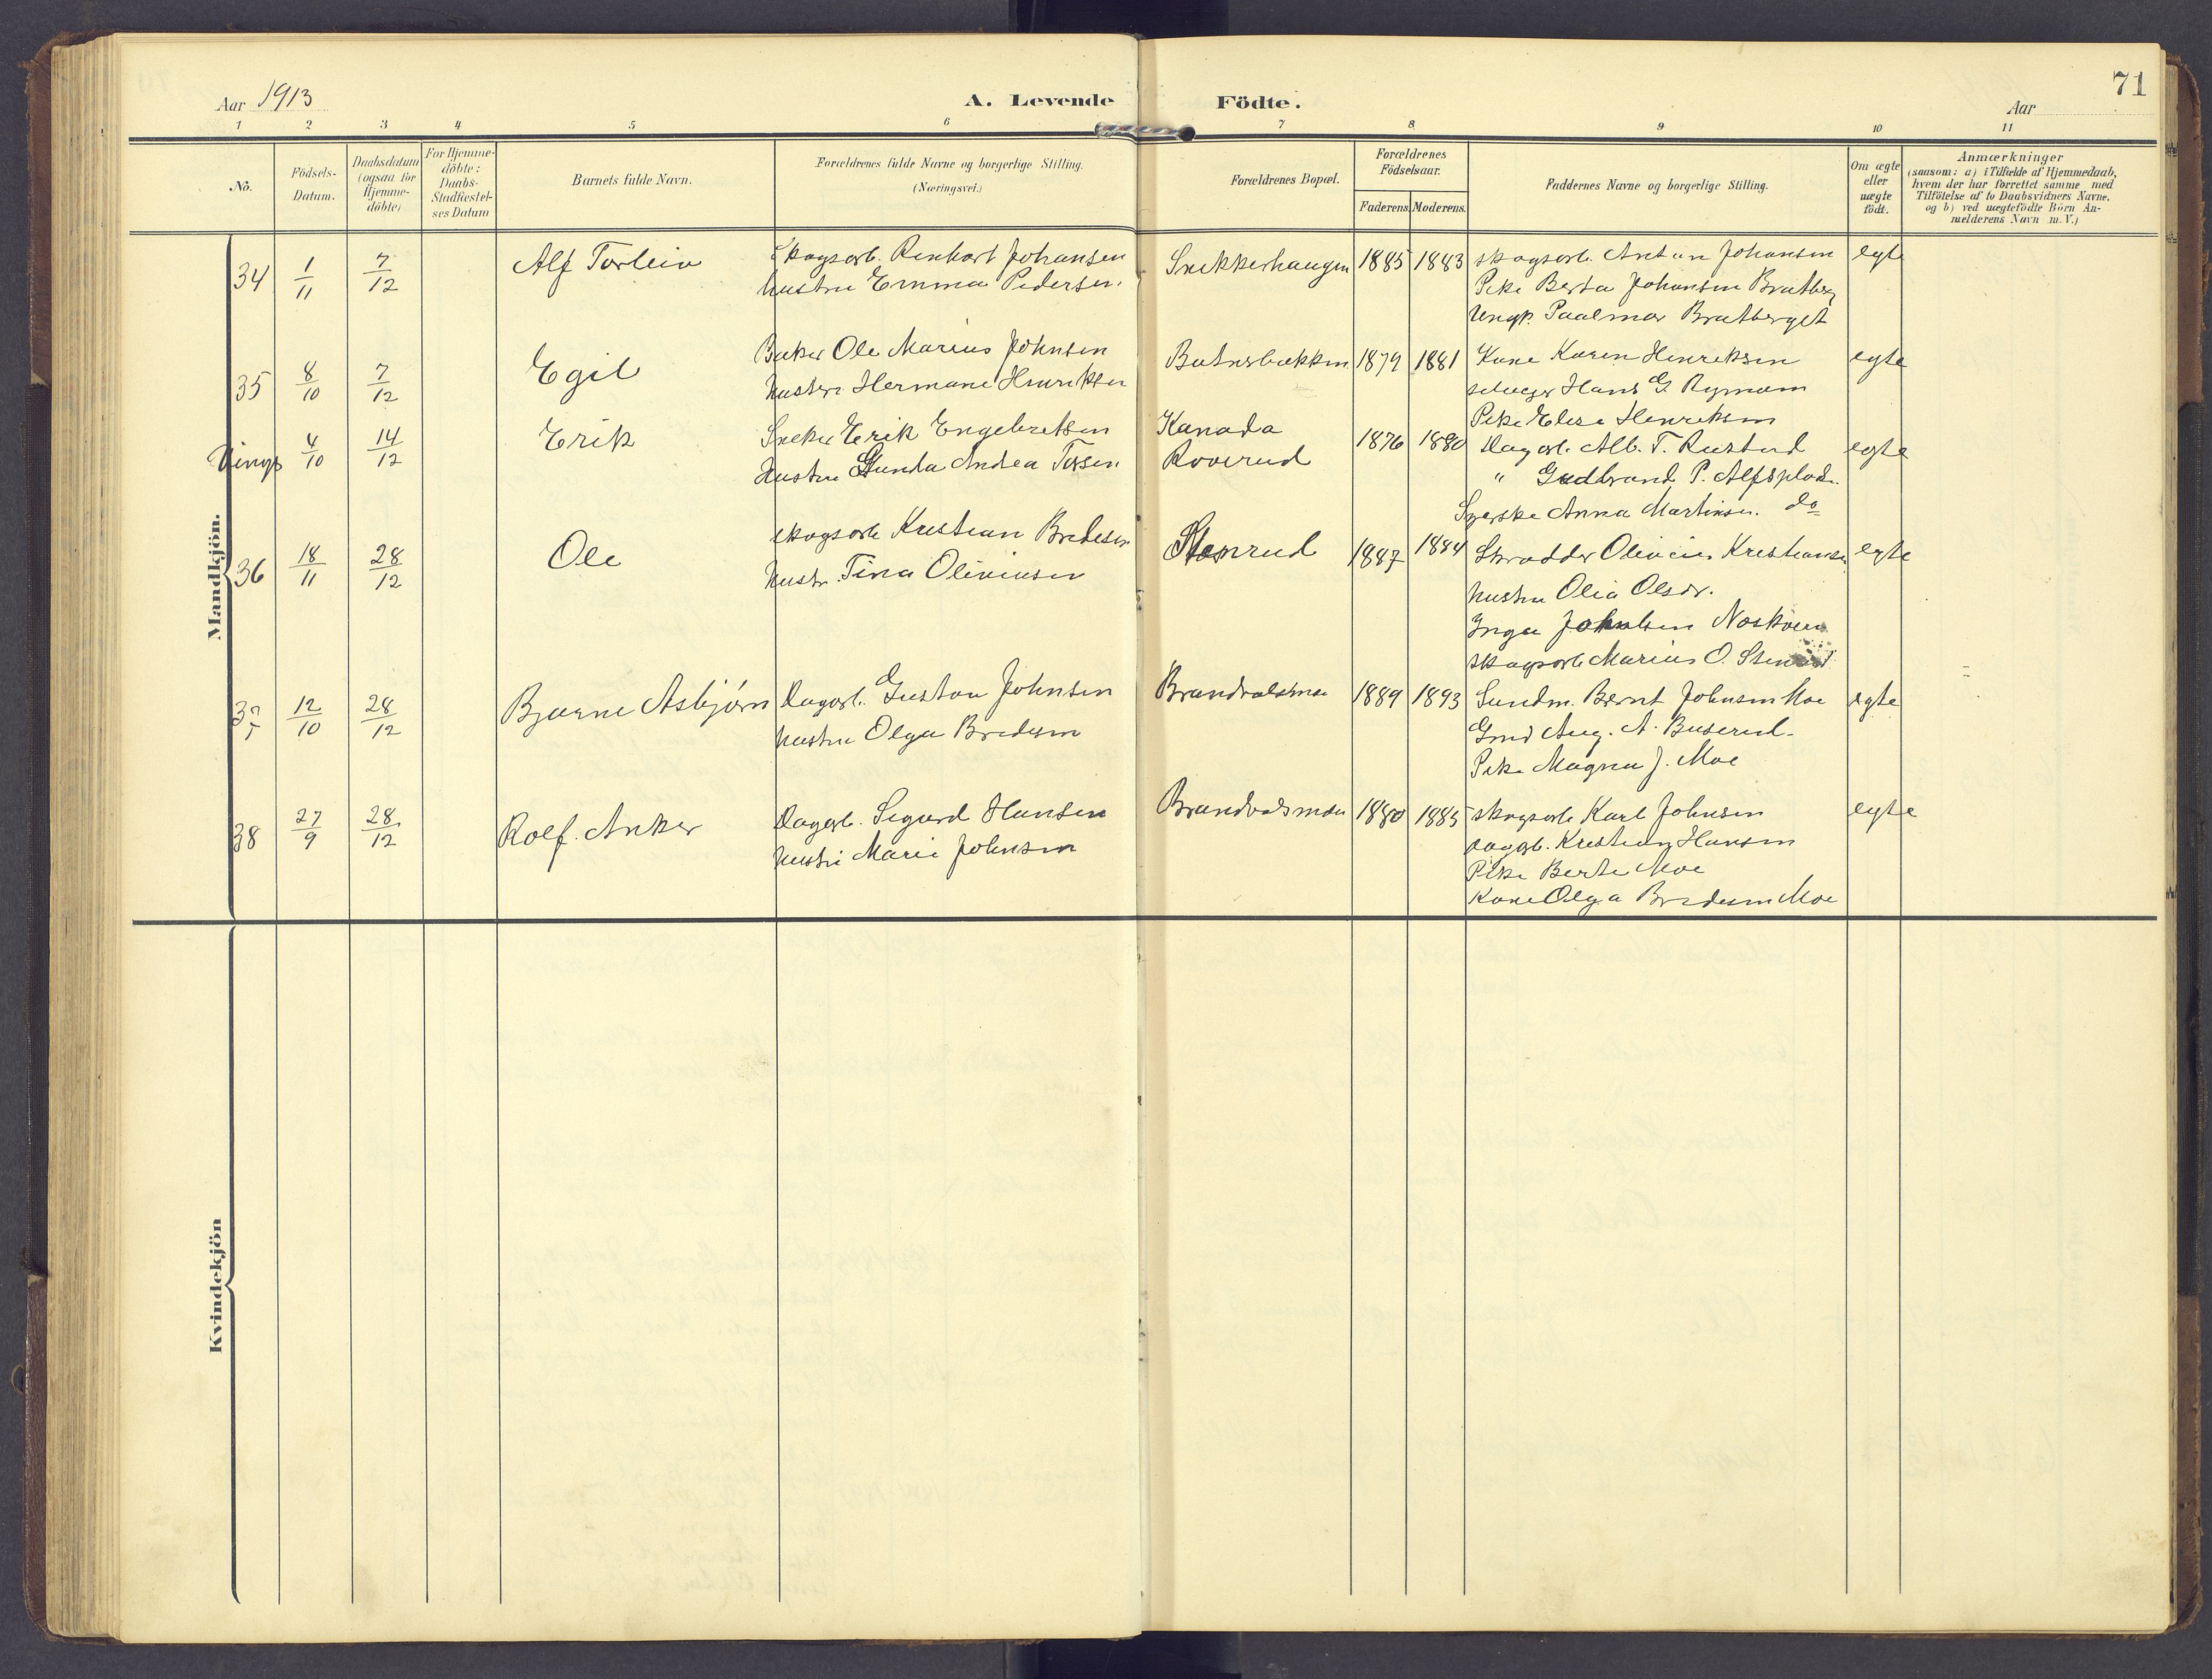 71
Aar 1913
A. Levende Födte.
Aar
1 2 3 4 5 6 7 8 9 10 11
No.
Födsels-Datum.
Daabsdatum (ogsaa for Hjemme-döbte)
For Hjemme-döbte: Daabs-Stadfæstel-ses Datum
Barnets fulde Navn.
Forældrenes fulde Navne og borgerlige Stilling.
(Næringsvei.)
Forældrenes Bopæl.
Forældrenes Födselsaar.
Faderens. Moderens.
Faddernes Navne og borgerlige Stilling.
Om ægte eller uægte födt.
Anmærkninger
(saasom: a) i Tilfælde af Hjemmedaab,
hvem der har forrettet samme med
Tilföielse af to Daabsvidners Navne,
og b) ved uægtefödte Börn An-
melderens Navn m. V.)
Mandkjön.
34 1/11 7/12 Alf Torleiv Skogsarb. Renhart Johansen Snekkerhaugen 1885 1883 skogsarb. Anton Johansen egte
hustru Emma Pedersen. Pike Berta Johansen Bratberg
Ungk. Paalmar Bratberget
35 8/10 7/12 Egil Baker Ole Marius Johnsen 1879 1881 Kone Karen Henriksen egte
hustru Hermane Henriksen Hans G Rymoen
Pike Elise Henriksen
4/10 14/12 Erik Erik Engebretsen Kanada 1876 1880 Dagarb. Alb. T. Rustad egte
Hustru Gunda Andrea Torsen Roverud " Gudbrand P. Alfsplads.
Syerske Anna Martinsen. do
36 18/11 28/12 Ole skogsarb Kristian Bredesen Stenrud 1887 1884 Skrædder Olivius Kristiansen egte
hustr. Tina Oliviusen hustru Olia Olsdr.
Inga Johnsen Noskven
skogsarb Marius O. Stenrud
37 12/10 28/12 Bjarne Asbjørn Dagarb. Gustav Johnsen Brandvalsmoe 1889 1893 Sundm. Bernt Johnsen Moe egte
hustru Olga Bredesen Gmd Aug. A. Buserud.
Pike Magna J. Moe
38 27/9 28/12 Rolf. Anker Dagarb. Sigurd Hansen Brandvalsmoen 1880 1885 skogsarb Karl Johnsen egte
hustru Marie Johnsen dagarb. Kristian Hansen
Pike Berte Moe
Kone Olga Bredesen Moe
Kvindekjön